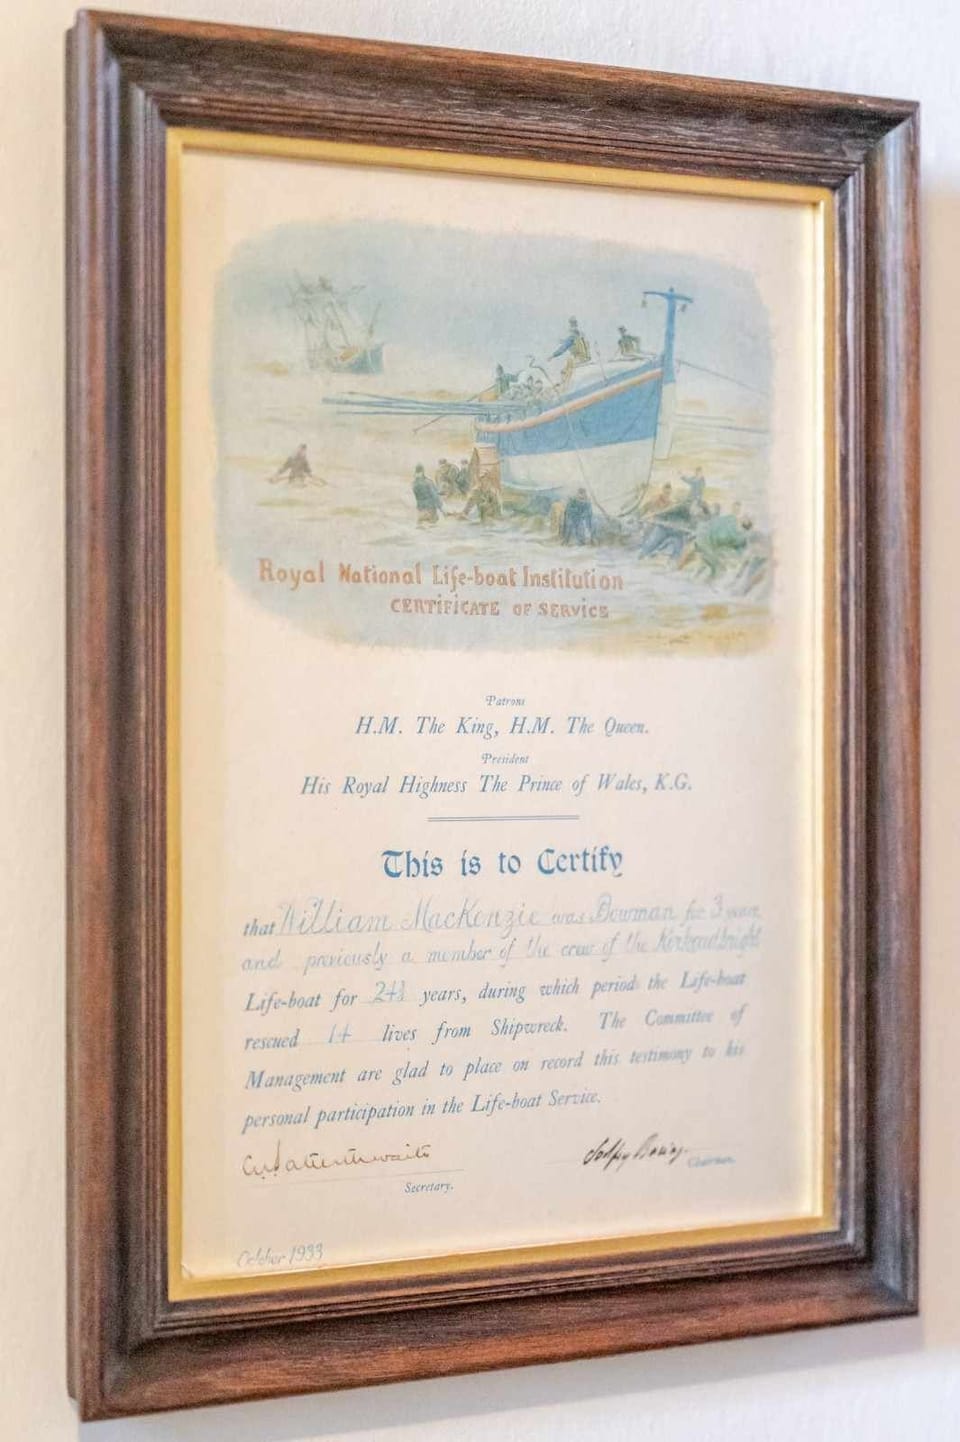 Royal National Life-boat Institution
CERTIFICATE OF SERVICE
Patrons
H.M. The King, H.M. The Queen.
President
His Royal Highness The Prince of Wales, K.G.
This is to Certify
that William MacKenzie was Bowman for 3 years
and previously a member of the crew of the Kirkcudbright
Life-boat for years, during which period the Life-boat
rescued 14 lives from Shipwreck. The Committee of
Management are glad to place on record this testimony to his
personal participation in the Life-boat Service.
Satterthwaite
Secretary.
Chairman.
October 1933